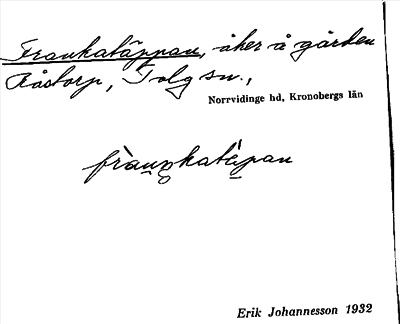 Frankatäppan, åker å gården
Råstorp, Tolg sn.,
Norrvidinge hd, Kronobergs län
fràŋkatàpan
Erik Johannesson 1932